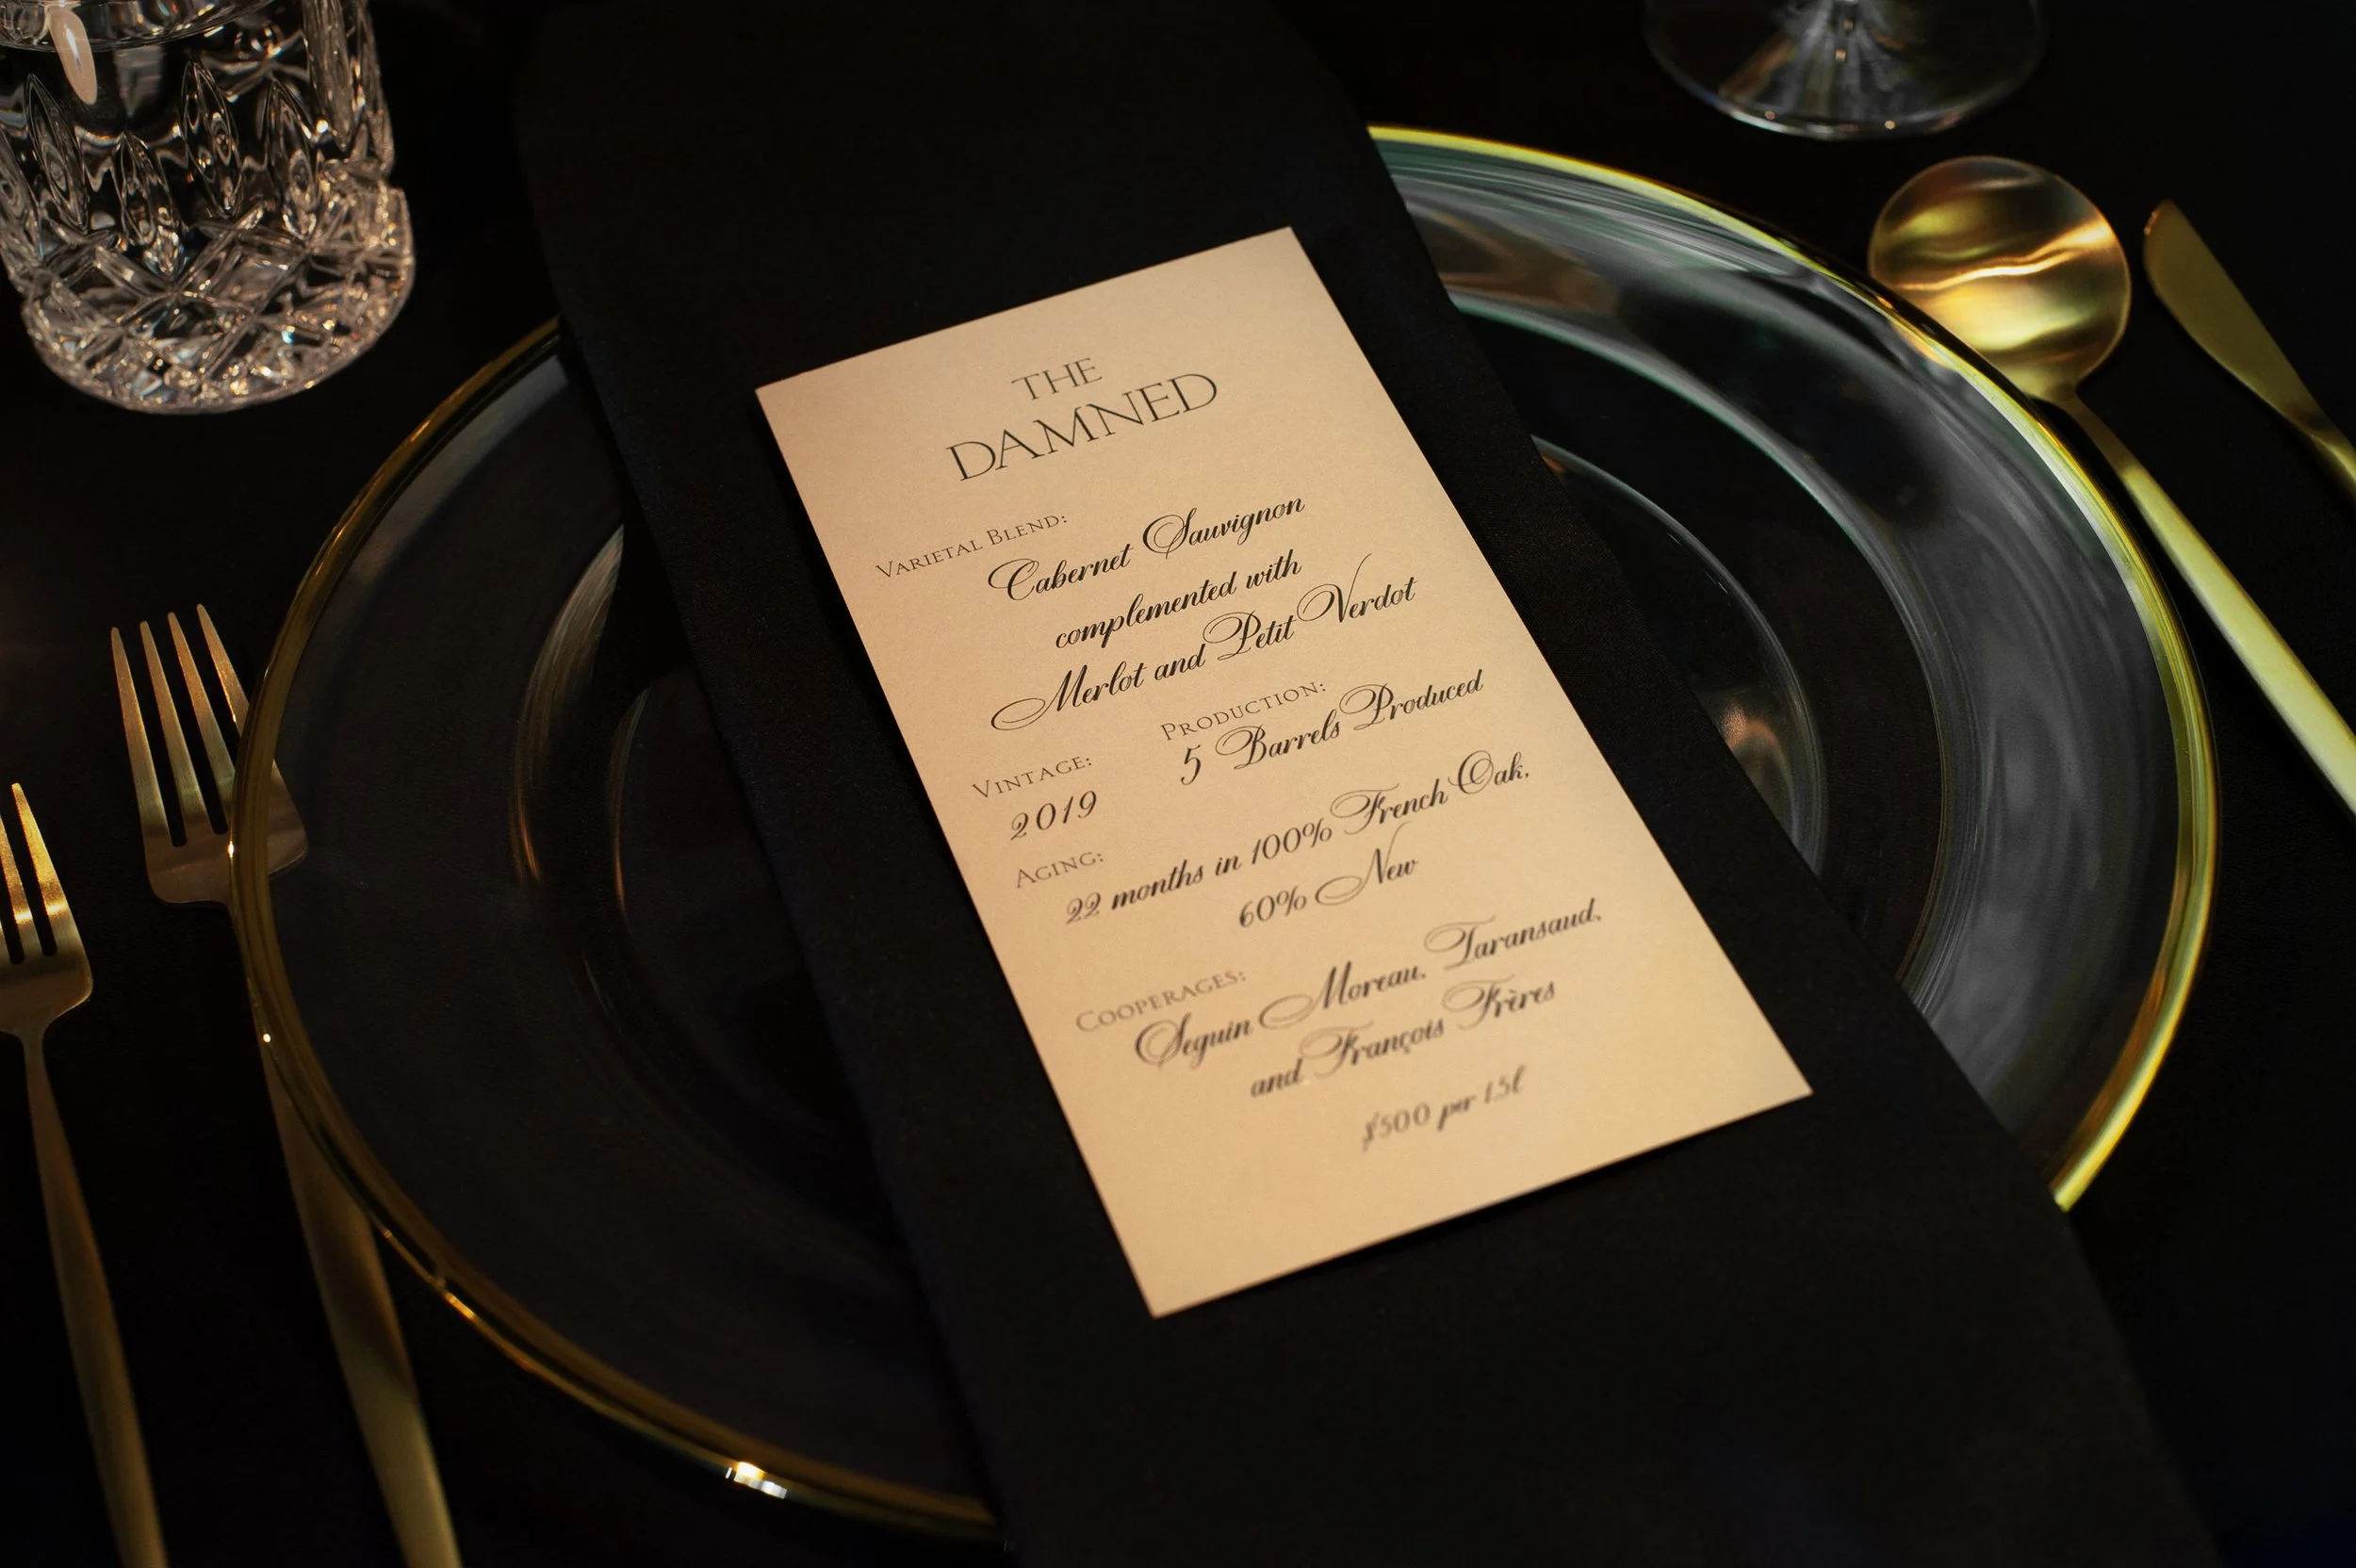 THE
DAMNED
VARIETAL BLEND:
Cabernet Sauvignon
complemented with
Merlot and Petit Verdot
VINTAGE:
2019
PRODUCTION:
5 Barrels Produced
AGING:
22 months in 100% French Oak,
60% New
COOPERAGES:
Seguin Moreau, Taransaud,
and François Frères
$500 per 1.5l